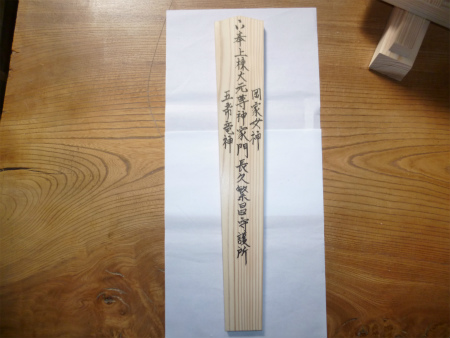 罔象女神
奉上棟大元尊神家門長久繁昌守護所
五帝竜神